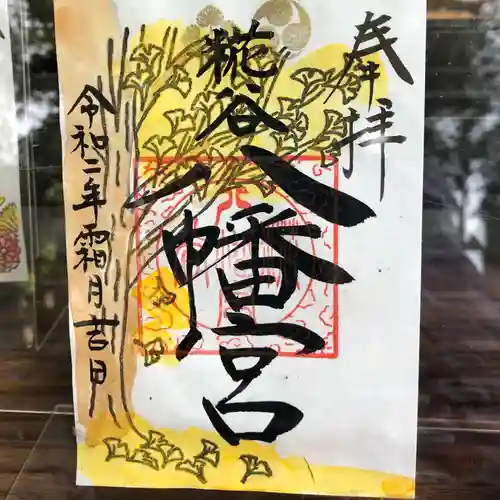 奉拝
糀谷
八幡宮
令和二年霜月吉日